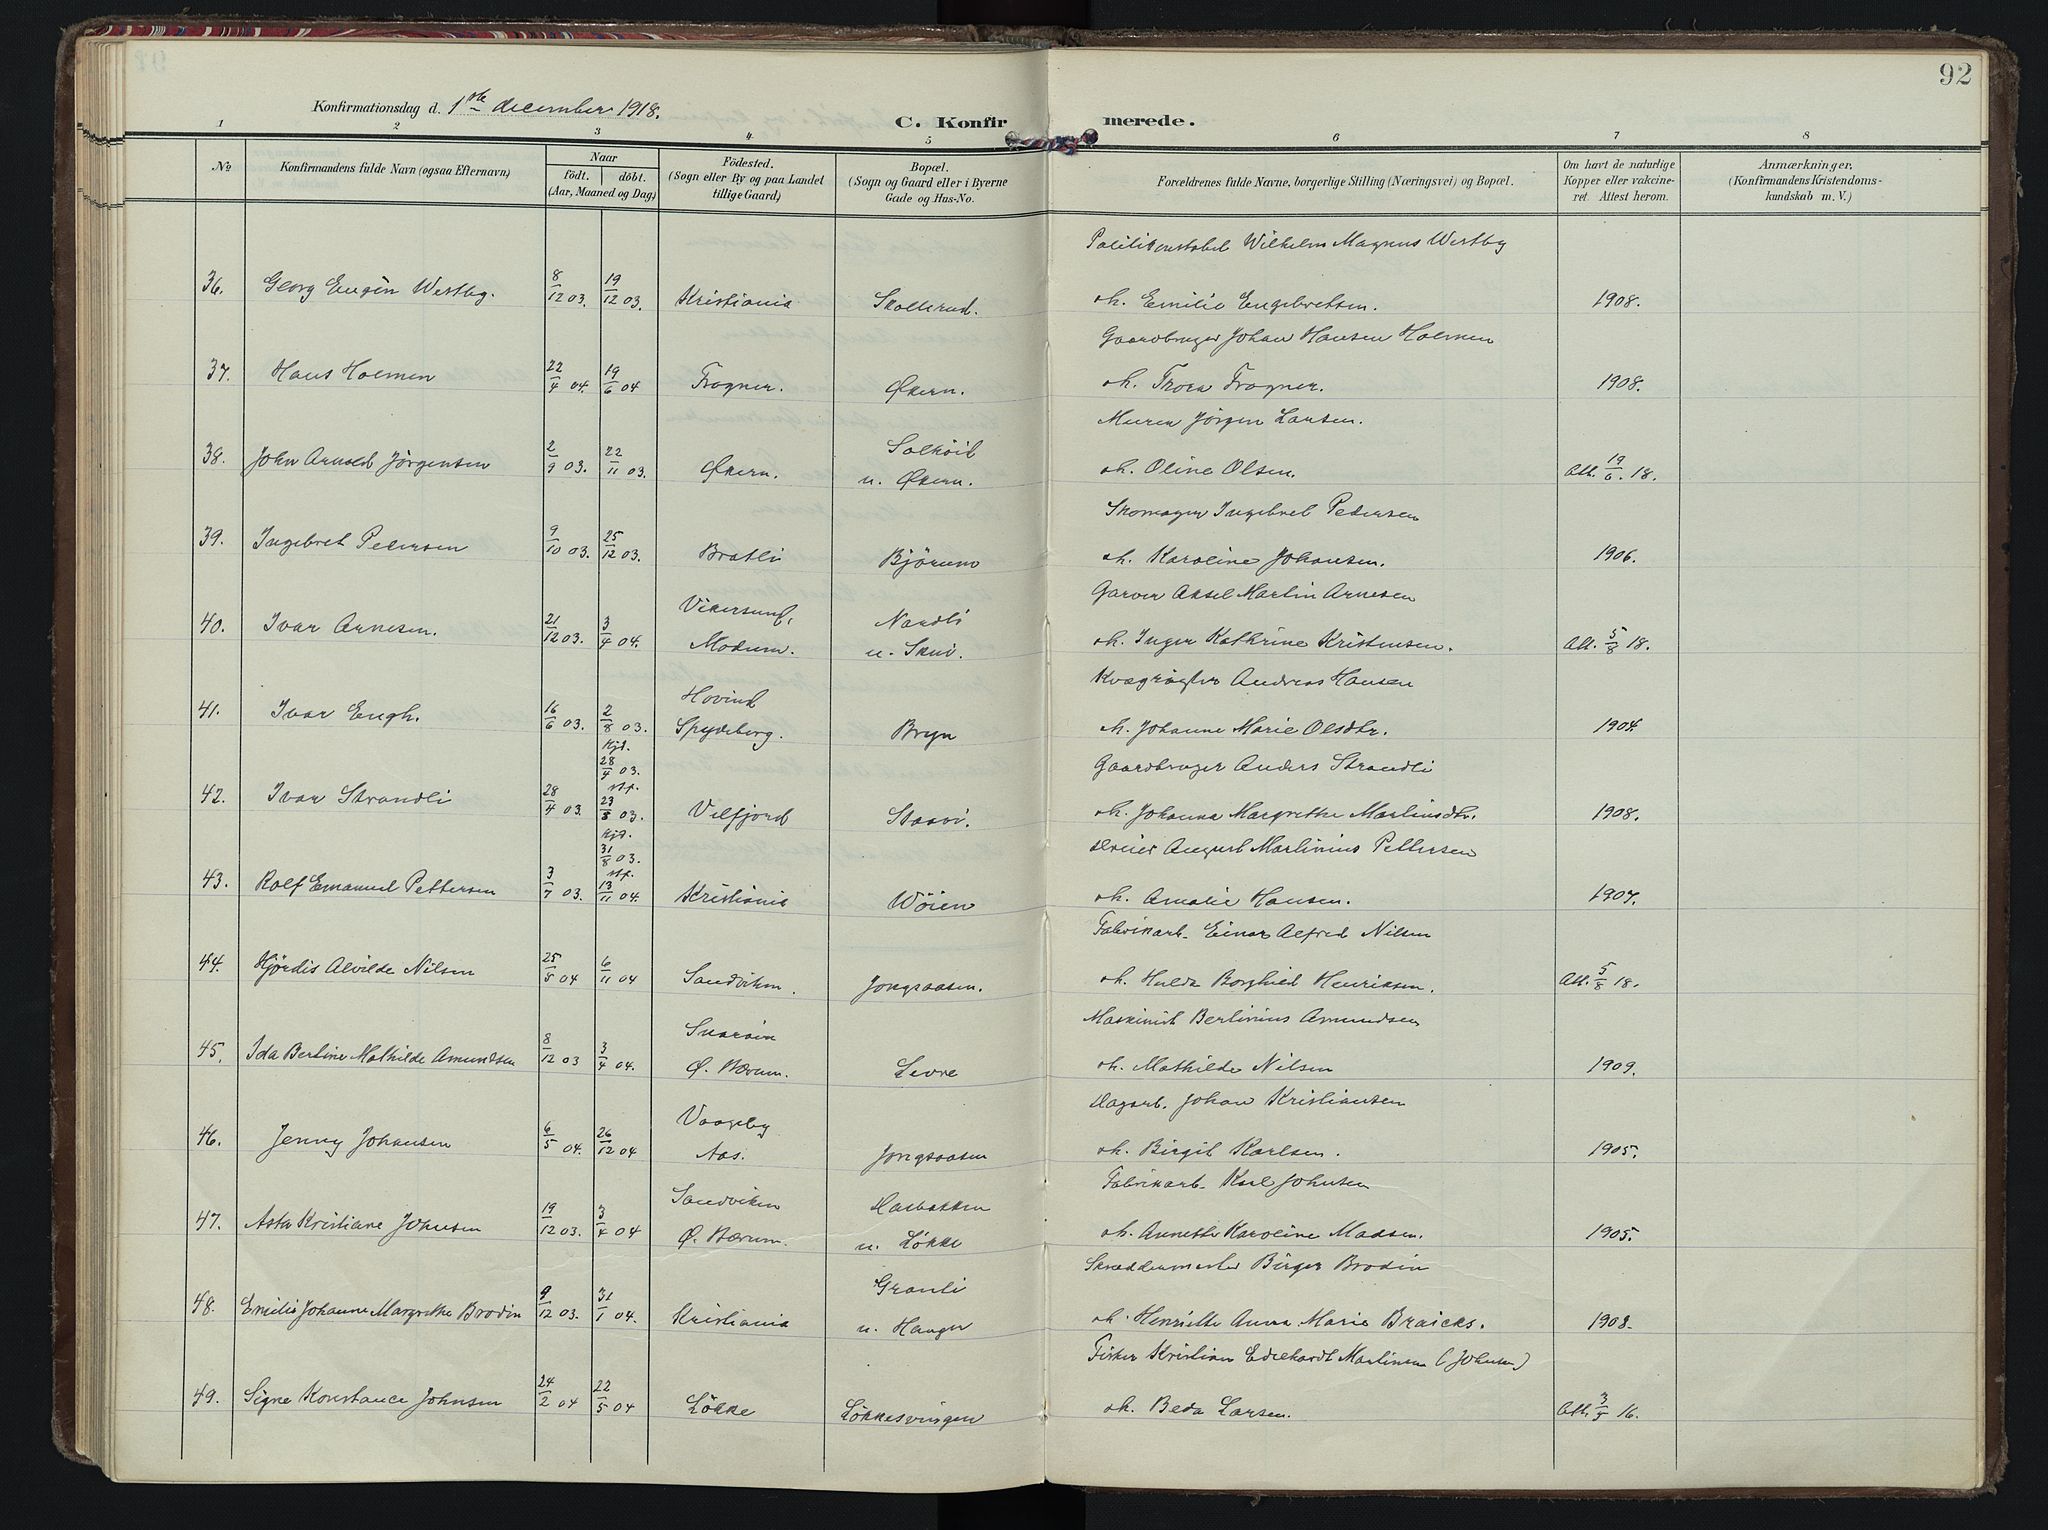 92
Konfirmationsdag d. 1ste december 1918.
C. Konfirmerede.
1 2 3 4 5 6 7 8
No Konfirmandens fulde Navn (ogsaa Efternavn) Naar födt. döbt. (Aar, Maaned og Dag) Födested. (Sogn eller By og paa Landet tillige Gaard) Bopæl. (Sogn og Gaard eller i Byerne Gade og Hus-No. Forældrenes fulde Navne, borgerlige Stilling (Næringsvei) og Bopæl. Om havt de naturlige Kopper eller vakcineret. Attest herom. Anmærkninger. (Konfirmandens Kristendomskundskab m. V.)
Politikonstabel Wilhelm Magnus Westby
36. Georg Eugen Westby. 8/12 03. 19/12 03. Kristiania Skollerud. oh. Emilie Engebretsen. 1908.
Gaardbruger Johan Hansen Holmen
37. Hans Holmen 22/4 04. 19/6 04 Frogner. Økern. oh. Thora Frogner. 1908.
Murer Jörgen Larsen.
38. John Arnold Jörgensen 2/9 03. 22/11 03. Økern. Solhöi u. Økern. oh. Oline Olsen. Att. 19/6. 18.
Skomager Ingebret Pedersen
39. Ingebret Pedersen 9/10 03. 25/12 03. Bratli Björum oh. Karoline Johansen. 1906.
Garver Aksel Martin Arnesen
40. Ivar Arnesen. 21/12 03. 3/4 04. Vikersund, Modum. Nordli u. Skui. oh. Inger Kathrine Kristensen. Att. 5/8 18.
Kvægrögter Andreas Hansen
41. Ivar Engh. 16/6 03. 2/8 03. Hovind Spydeberg. Bryn oh. Johanne Marie Olsdtr. 1904.
Gaardbruger Anders Strandli
42. Ivar Strandli 28/4 03. Hjd. 28/4 03. stf. 23/8 03. Velfjord Staavi. oh. Johanna Margrethe Martinsdtr. 1908.
Dreier August Martinius Pettersen
43. Rolf Emanuel Pettersen 3/7 03. Hjd. 31/8 03. stf. 13/11 04. Kristiania Wöien oh. Amalie Hansen. 1907.
Fabrikarb. Einar Alfred Nilsen
44. Hjördis Alvilde Nilsen 25/5 04 6/11 04 Sandviken. Jongsaasen. oh. Hulda Borghild Henriksen. Att. 5/8 18.
Maskinist Bertinius Amundsen
45. Ida Bertine Mathilde Amundsen 8/12 03 3/4 04. Snaröen Ø. Bærum. Levre oh. Mathilde Nilsen 1909.
Dagarb. Johan Kristiansen
46. Jenny Johansen 6/5 04. 26/12 04 Vaageby Aas. Jongsaasen oh. Birgit Karlsen. 1905.
Fabrikarb. Karl Johnsen
47. Asta Kristiane Johnsen 19/12 03. 3/4 04 Sandviken Ø. Bærum. Dalbakken u. Løkke oh. Annette Karoline Madsen. 1905.
Skræddermester Birger Brodin
48. Emilie Johanne Margrethe Brodin 9/12 03. 31/1 04. Kristiania Granli u. Hauger oh. Henriette Anna Marie Braicks. 1908.
Fisker Kristian Edvehardt Martinsen (Johnsen)
49. Signe Konstance Johnsen 24/2 04 22/5 04 Løkke Løkkesvingen oh. Beda Larsen. Att. 3/5 16.